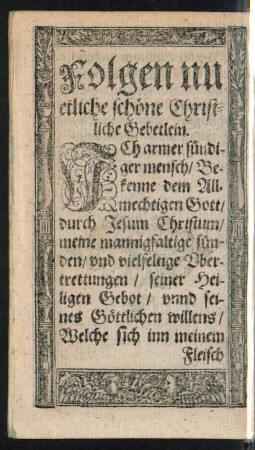 Folgen nu
etliche schöne Christ-
liche Gebetlein.
ICh armer sündi-
ger mensch/ Be-
kenne dem All-
mechtigen Gott/
durch Jesum Christum/
meine mannigfaltige sün-
den/ vnd vielfeltige Vber-
trettungen / seiner Hei-
ligen Gebot / vnnd sei-
nes Göttlichen willens/
Welche sich inn meinem
Fleisch